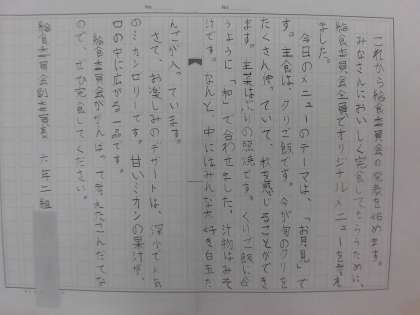 これから給食委員会の発表を始めます。
みなさんにおいしく完食してもらうために、
給食委員会全員でオリジナルメニューを考え
ました。
今日のメニューのテーマは、「お月見」で
す。主食は、クリご飯です。今が旬のクリを
たくさん使っていて、秋を感じることができ
ます。主菜はぶりの照焼です。くりご飯に合
うように「和」で合わせました。汁物はみそ
汁です。なんと、中にはみんな大好き白玉だ
んごが入っています。
さて、お楽しみのデザートは、
のミカンゼリーです。甘いミカンの果汁が、
口の中に広がる一品です。
給食委員会ががんばって考えたこんだてな
ので、ぜひ完食してください。
給食委員会副委員長 六年二組